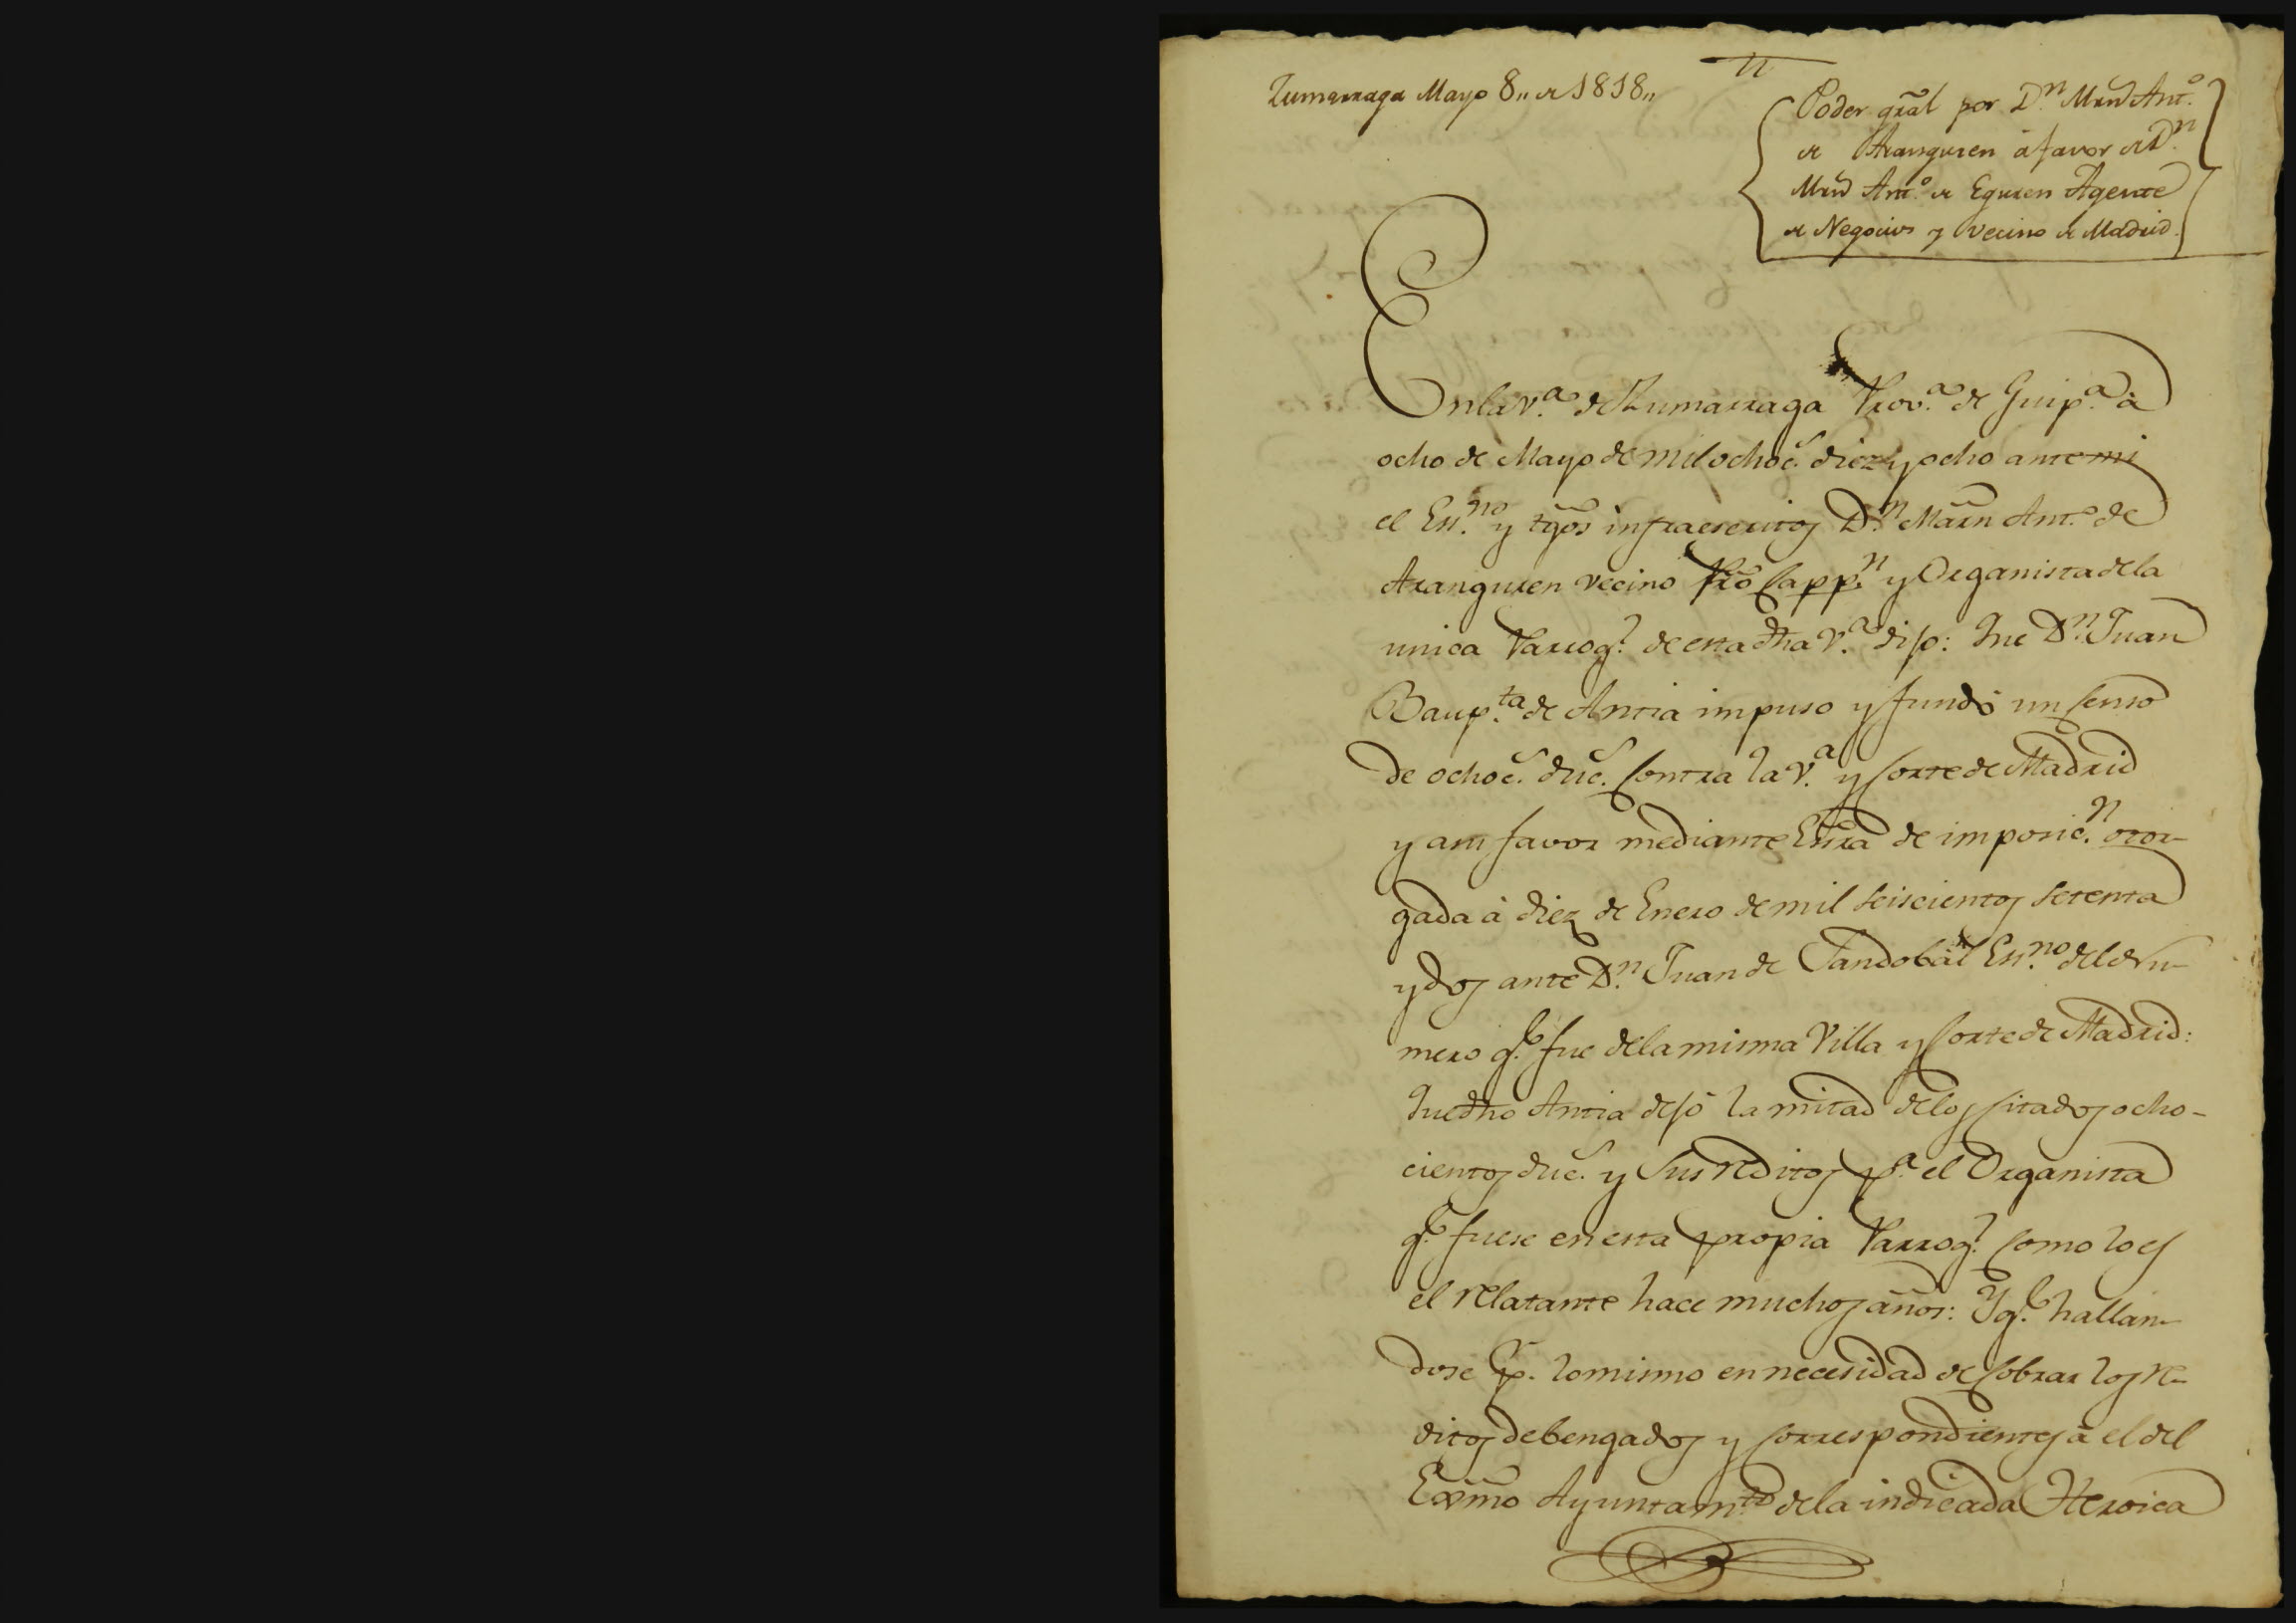 Zumarraga Mayo 8,, de 1818,,
Poder gral por D.n Mrn Ant.o
de Aranguren á favor de D.n
Mrn Ant.o de Eguren Agente
de Negocios y vecino de Madrid.
En la v.a de Zumarraga Prov.a de Guip.a à
ocho de Mayo de mil ochoc.s diez y ocho ante mi
el Ess.no y tgos infraescritos D.n Marn Ant.o de
Aranguren vecino Pro Capp.n y Organista de la
unica Parroq.l de esta dha V.a dijo: Que D.n Juan
Baup.ta de Antia impuso y fundó un Censo
de ochoc.s duc.s Contra la v.a y Corte de Madrid
y a su favor mediante Essra de imposic.n otor-
gada à diez de Enero de mil seiscientos setenta
y dos ante D.n Juan de Sandobal Ess.no del Nu-
mero q.e fue de la misma Villa y Corte de Madrid:
Que dho Antia dejó la mitad de los citados ocho-
cientos duc.s y sus reditos p.a el Organista
q.e fuese en esta propia Parroq.l Como lo es
el relatante hace muchos años: Y q.e hallan-
dose p.r lo mismo en necesidad de Cobrar los re-
ditos debengados y Correspondientes à el del
Exmo Ayuntam.to de la indicada Heroica